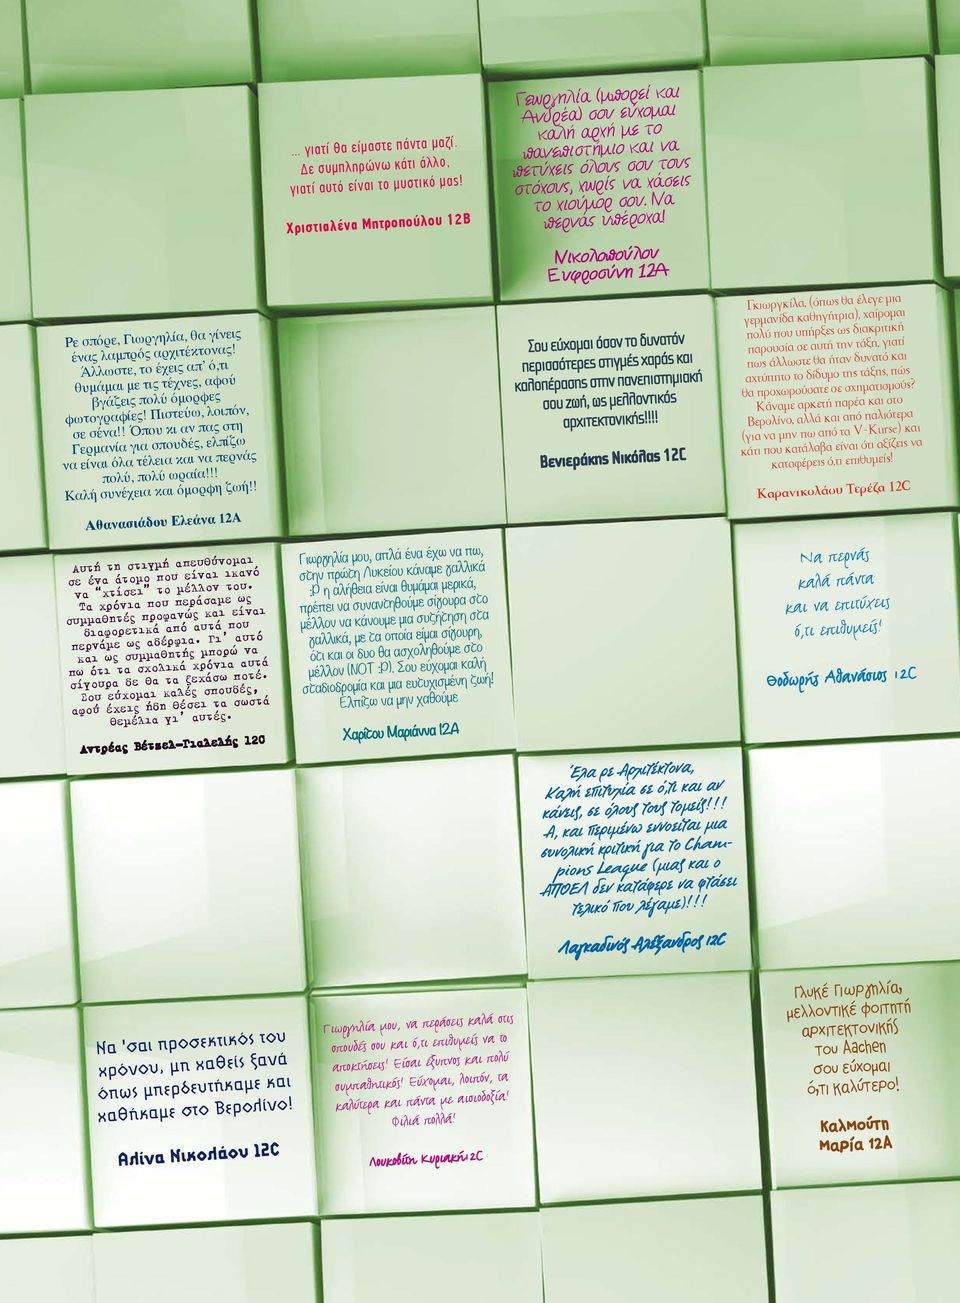 ... γιατί θα είμαστε πάντα μαζί.
Δε συμπληρώνω κάτι άλλο,
γιατί αυτό είναι το μυστικό μας!
Χριστιαλένα Μητροπούλου 12Β
Γεωργηλία (μπορεί και
Ανδρέα) σου εύχομαι
καλή αρχή με το
πανεπιστήμιο και να
πετύχεις όλους σου τους
στόχους, χωρίς να χάσεις
το χιούμορ σου. Να
περνάς υπέροχα!
Νικολοπούλου
Ευφροσύνη 12Α
Ρε σπόρε, Γιωργηλία, θα γίνεις
ένας λαμπρός αρχιτέκτονας!
Άλλωστε, το έχεις απ' ό,τι
θυμάμαι με τις τέχνες, αφού
βγάζεις πολύ όμορφες
φωτογραφίες! Πιστεύω, λοιπόν,
σε σένα!! Όπου κι αν πας στη
Γερμανία για σπουδές, ελπίζω
να είναι όλα τέλεια και να περνάς
πολύ, πολύ ωραία!!!
Καλή συνέχεια και όμορφη ζωή!!
Αθανασιάδου Ελεάνα 12Α
Σου εύχομαι όσον το δυνατόν
περισσότερες στιγμές χαράς και
καλοπέρασης στην πανεπιστημιακή
σου ζωή, ως μελλοντικός
αρχιτεκτονικής!!!!
Βενιεράκης Νικόλας 12C
Γκιωργκίλα, (όπως θα έλεγε μια
γερμανίδα καθηγήτρια), χαίρομαι
πολύ που υπήρξες ως διακριτική
παρουσία σε αυτή την τάξη, γιατί
πως άλλωστε θα ήταν δυνατό και
αχτύπητο το δίδυμο της τάξης, πώς
θα προχωρούσατε σε σχηματισμούς?
Κάναμε αρκετή παρέα και στο
Βερολίνο, αλλά και από παλιότερα
(για να μην πω από τα V-Kurse) και
κάτι που κατάλαβα είναι ότι αξίζεις να
καταφέρεις ό,τι επιθυμείς!
Καρανικολάου Τερέζα 12C
Αυτή τη στιγμή απευθύνομαι
σε ένα άτομο που είναι ικανό
να "χτίσει" το μέλλον του.
Τα χρόνια που περάσαμε ως
συμμαθητές προφανώς και είναι
διαφορετικά από αυτά που
περνάμε ως αδέρφια. Γι' αυτό
και ως συμμαθητής μπορώ να
πω ότι τα σχολικά χρόνια αυτά
σίγουρα δε θα τα ξεχάσω ποτέ.
Σου εύχομαι καλές σπουδές,
αφού έχεις ήδη θέσει τα σωστά
θεμέλια γι' αυτές.
Αντρέας Βέτσελ-Γιαλελής 12C
Γιωργηλία μου, απλά ένα έχω να πω,
στην πρώτη Λυκείου κάναμε γαλλικά
:P η αλήθεια είναι θυμάμαι μερικά,
πρέπει να συναντηθούμε σίγουρα στο
μέλλον να κάνουμε μια συζήτηση στα
γαλλικά, με τα οποία είμαι σίγουρη,
ότι και οι δυο θα ασχοληθούμε στο
μέλλον (NOT :P). Σου εύχομαι καλή
σταδιοδρομία και μια ευτυχισμένη ζωή!
Ελπίζω να μην χαθούμε
Χαρίτου Μαριάννα 12Α
Να περνάς
καλά πάντα
και να επιτύχεις
ό,τι επιθυμείς!
Θοδωρής Αθανάσιος 12C
Έλα ρε Αρχιτέκτονα,
Καλή επιτυχία σε ό,τι και αν
κάνεις, σε όλους τους τομείς!!!
Α, και περιμένω εννοείται μια
συνολική κριτική για το Cham-
pions League (μιας και ο
ΑΠΟΕΛ δεν κατάφερε να φτάσει
τελικό που λέγαμε)!!!
Λαγκαδινός Αλέξανδρος 12C
Να 'σαι προσεκτικός του
χρόνου, μη χαθείς ξανά
όπως μπερδευτήκαμε και
χαθήκαμε στο Βερολίνο!
Αλίνα Νικολάου 12C
Γιωργηλία μου, να περάσεις καλά στις
σπουδές σου και ό,τι επιθυμείς να το
αποκτήσεις! Είσαι έξυπνος και πολύ
συμπαθητικός! Εύχομαι, λοιπόν, τα
καλύτερα και πάντα με αισιοδοξία!
Φιλιά πολλά!
Λουκοβίτη Κυριακή 12C
Γλυκέ Γιωργηλία,
μελλοντικέ φοιτητή
αρχιτεκτονικής
του Aachen
σου εύχομαι
ό,τι καλύτερο!
Καλμούτη
Μαρία 12Α